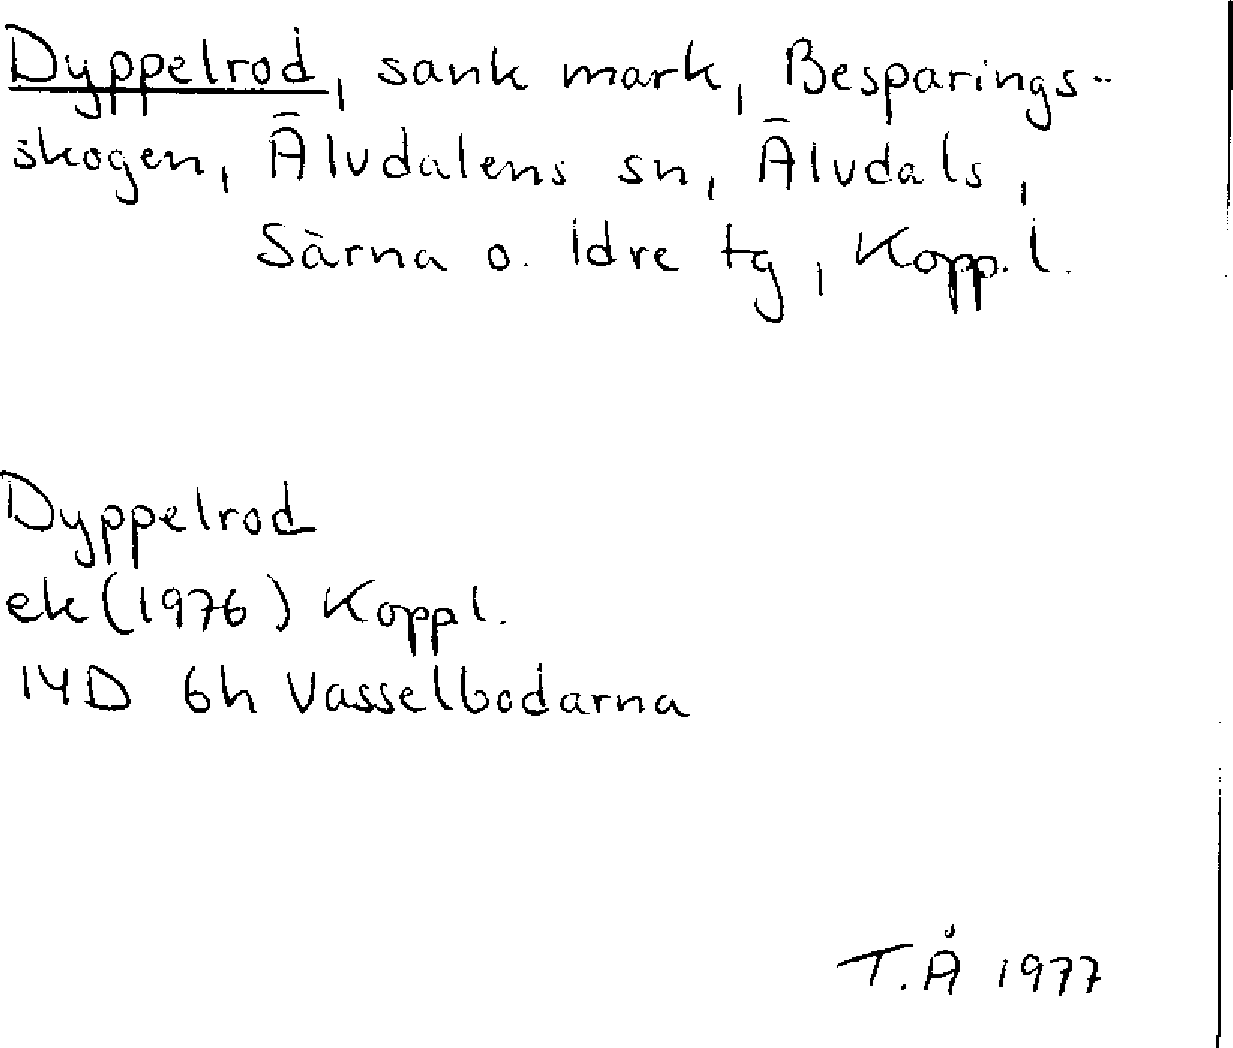 Dyppelrod, sank mark, Besparings-
skogen, Älvdalens sn, Älvdals,
Särna o. Idre tg, Kopp. l.
Dyppelrod
ek (1976) Kopp l.
14D 6h Vasselbodarna
T.Å 1977